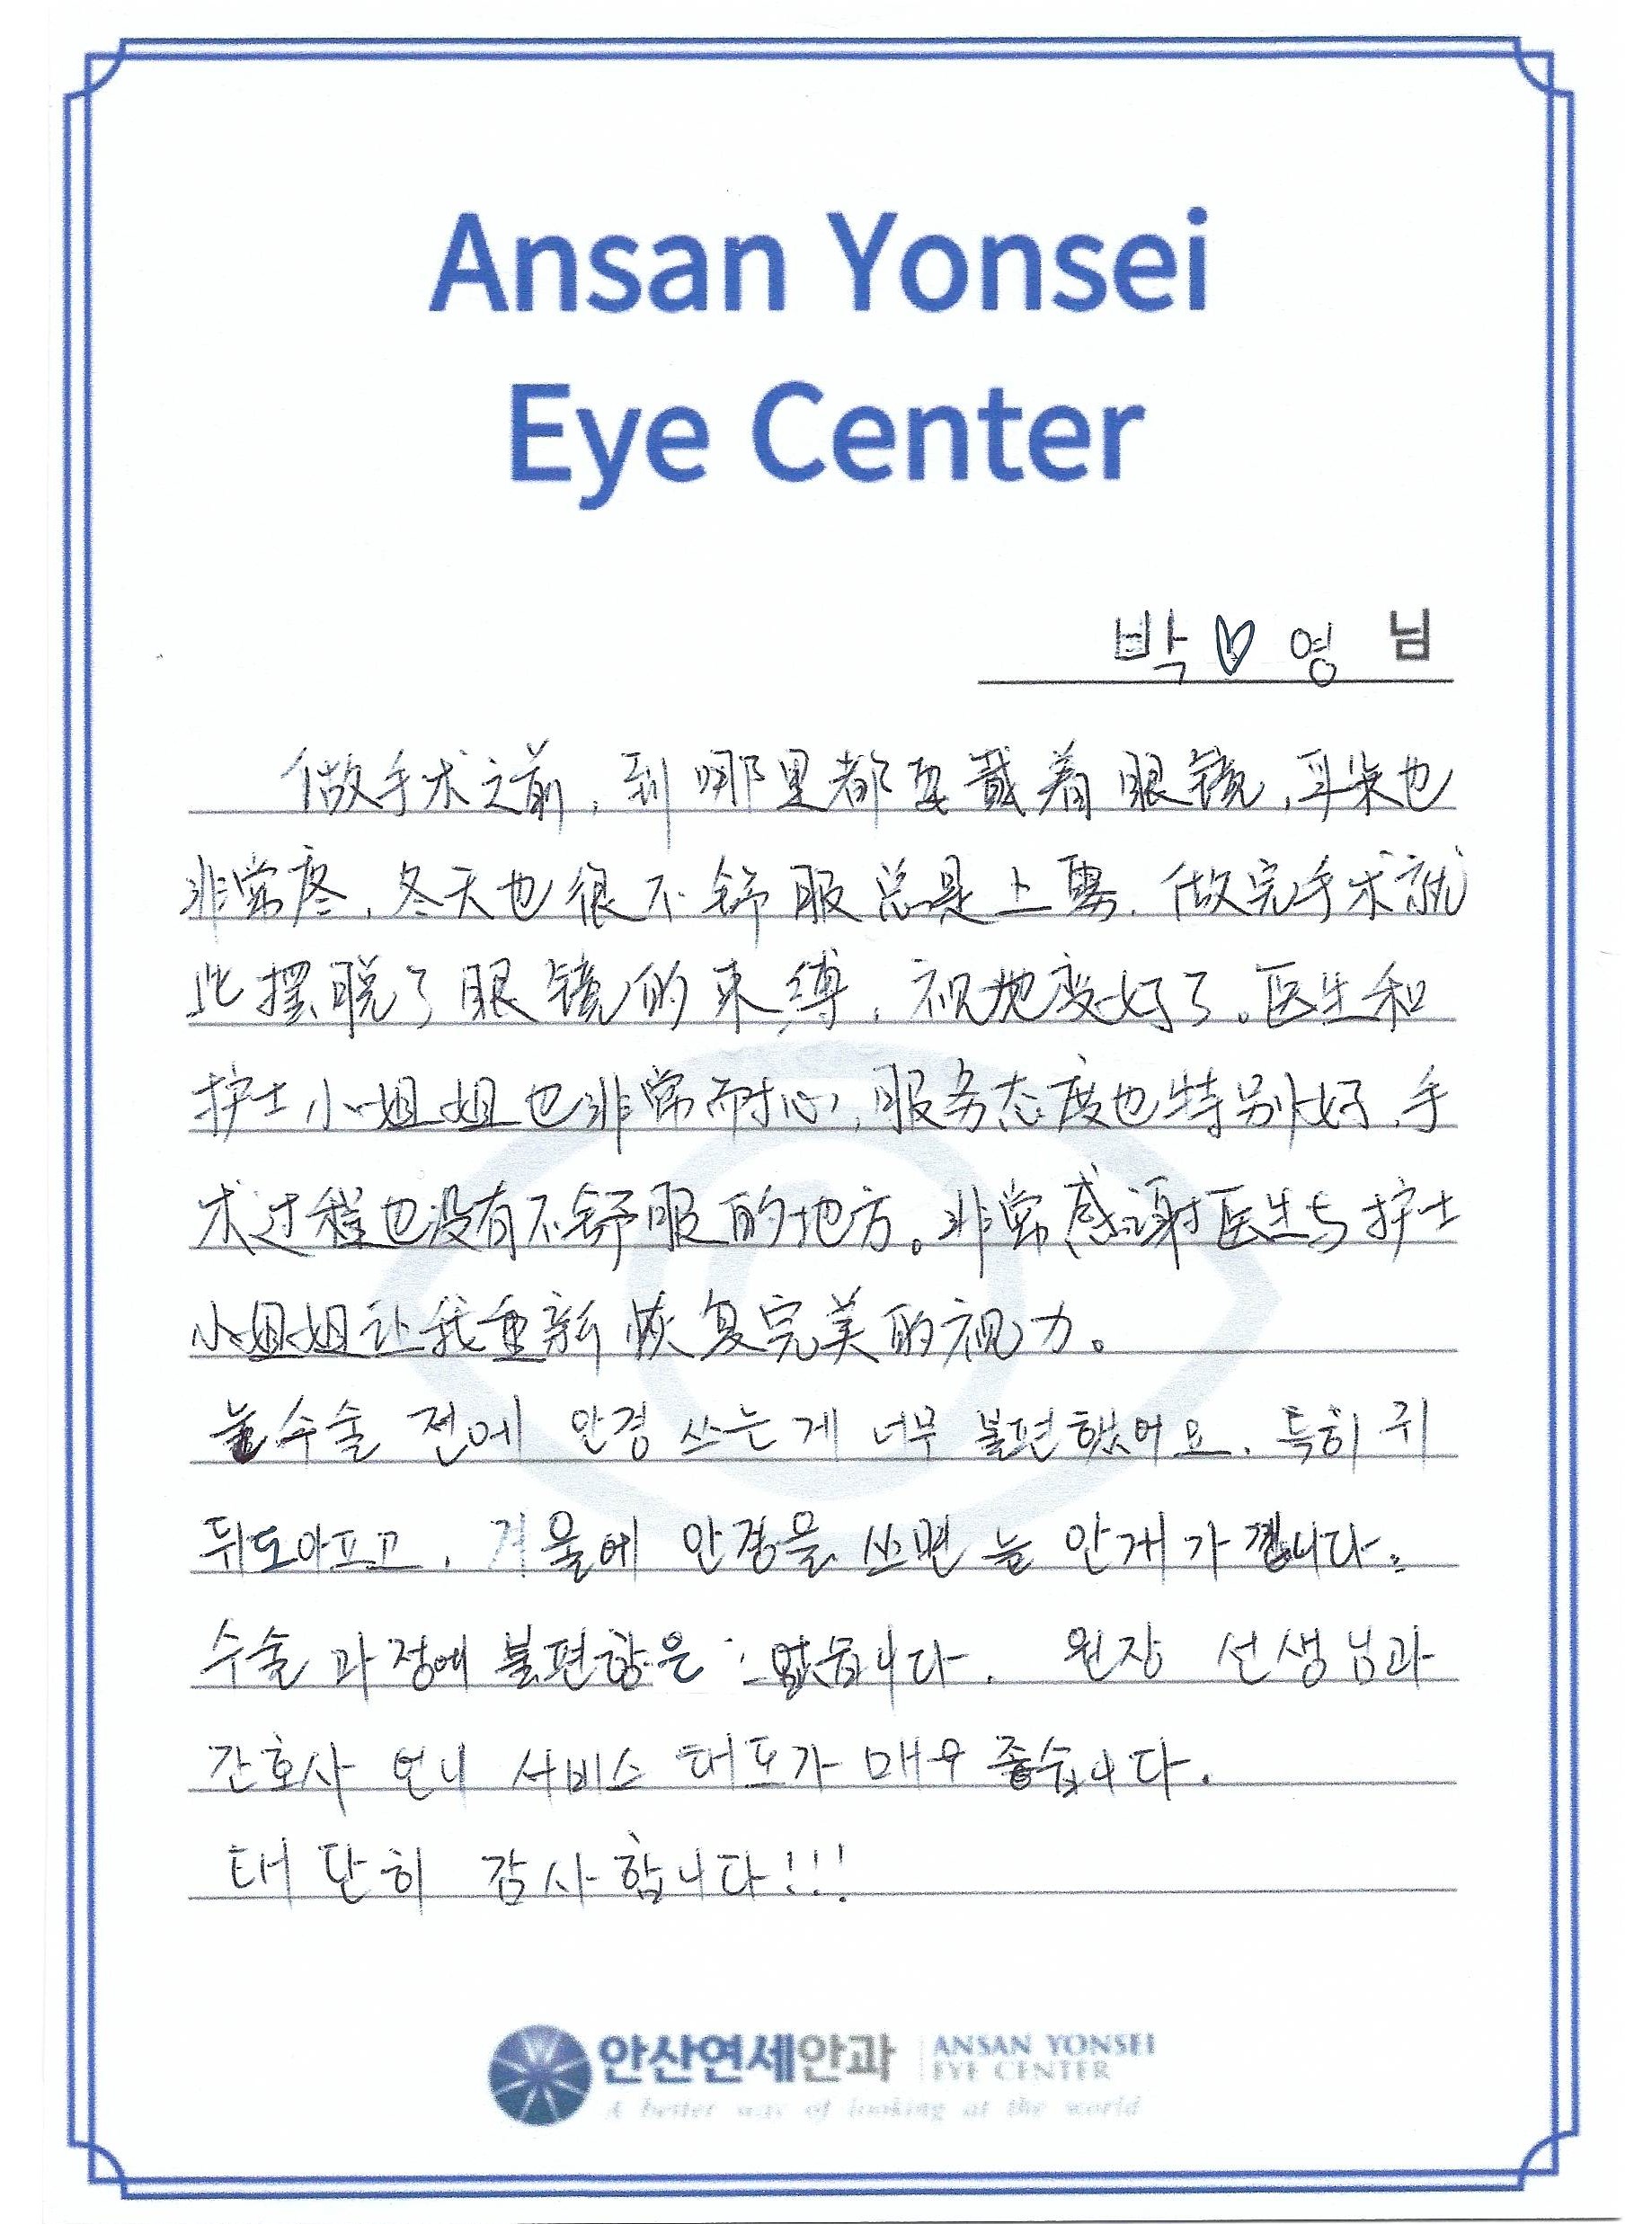 Ansan Yonsei
Eye Center
박♡영 님
做手术之前，到哪里都要戴着眼镜，耳朵也
非常疼，冬天也很不舒服总是上雾，做完手术就
此摆脱了眼镜的束缚，视也变好了。医生和
护士小姐姐也非常耐心，服务态度也特别好，手
术过程也没有不舒服的地方。非常感谢医生与护士
小姐姐让我重新恢复完美的视力。
눈수술 전에 안경 쓰는게 너무 불편했어요. 특히 귀
뒤도아프고, 겨울에 안경을 쓰면 늘 안개가 낍니다.
수술 과정에 불편함은 없습니다. 원장 선생님과
간호사 언니 서비스 태도가 매우 좋습니다.
대단히 감사합니다!!!
안산연세안과
ANSAN YONSEI
EYE CENTER
A better way of looking at the world